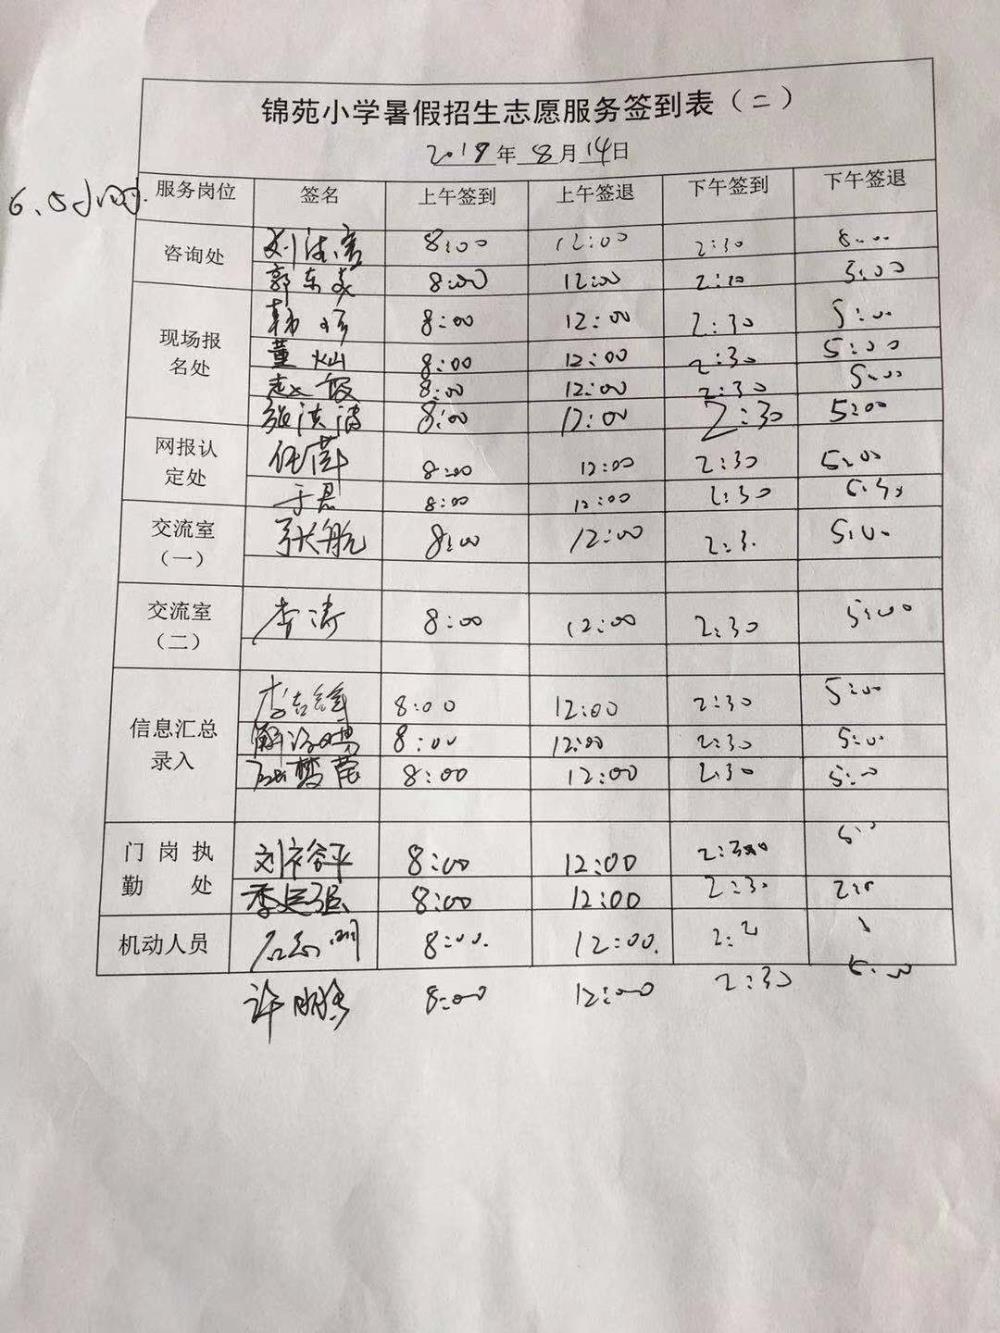 锦苑小学暑假招生志愿服务签到表（二）
2019年 8月 14日
6.5小时.
服务岗位 签名 上午签到 上午签退 下午签到 下午签退
咨询处 8:00 12:00 2:30
郭东美 8:00 12:00
现场报名处 8:00 12:00 2:30 5:00
董灿 8:00 12:00 2:30 5:00
8:00 12:00 2:30 5:00
张洪涛 8:00 12:00 2:30 5:00
网报认定处 任萍 8:00 12:00 2:30 5:00
于君 8:00 12:00 2:30
交流室（一） 张航 8:00 12:00 2:3. 5:00
交流室（二） 李涛 8:00 12:00 2:30 5:00
信息汇总录入 8:00 12:00 2:30 5:00
8:00 12:00 2:30 5:00
8:00 12:00 2:30 5:00
门岗执勤处 刘裕平 8:00 12:00 2:30
季延强 8:00 12:00 2:30
机动人员 8:00. 12:00.
许明 8:00 12:00 2:30